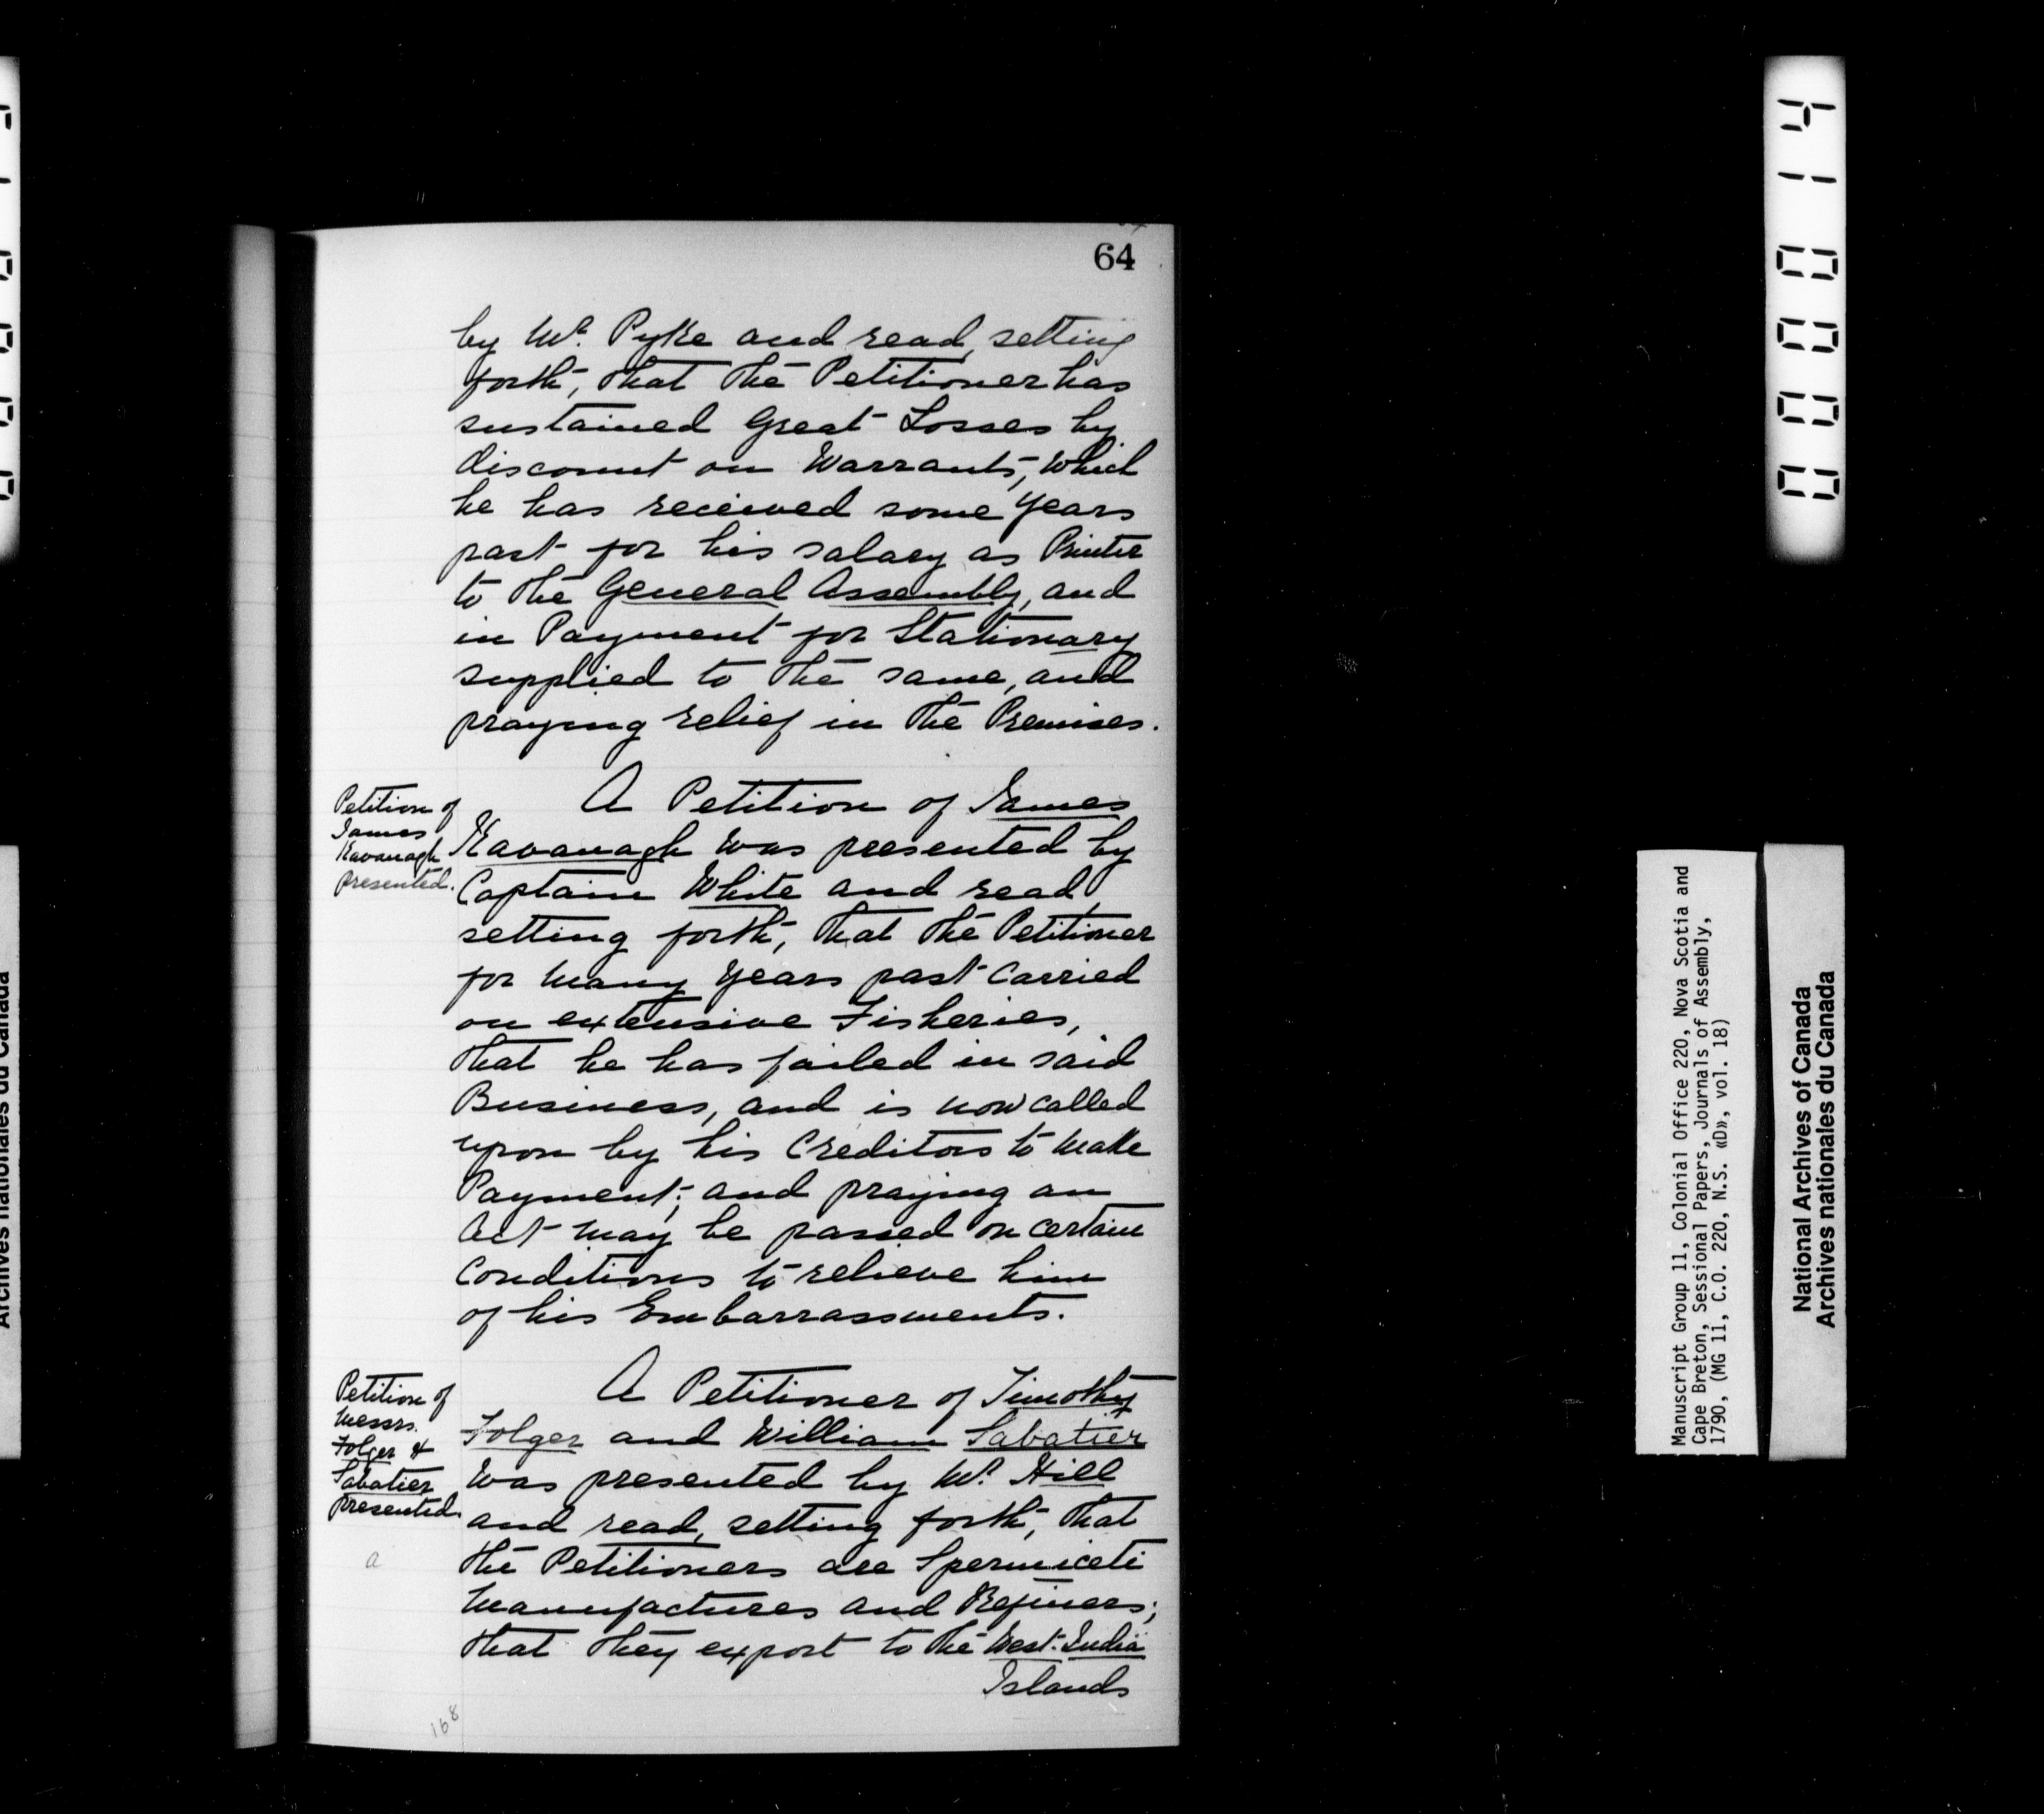 64
by Mr. Pyke and read, setting
forth, that the Petitioner has
sustained Great Losses by
discount on Warrants, which
he has received some years
past for his salary as Printer
to the General Assembly, and
in Payment for Stationary
supplied to the same, and
praying relief in the Premises.
Petition of
James
Kavanagh
presented.
A Petition of James
Kavanagh was presented by
Captain White and read
setting forth, that the Petitioner
for many years past carried
on extensive Fisheries,
that he has failed in said
Business, and is now called
upon by his Creditors to make
Payment; and praying an
Act may be passed on certain
Conditions to relieve him
of his Embarrassments.
Petition of
Messrs.
Folger &
Sabatier
presented.
a
A Petitioner of Timothy
Folger and William Sabatier
was presented by Mr. Hill
and read, setting forth, that
the Petitioners are Spermiceti
Manufactures and Refiners;
that they export to the West-India
Islands
168
41000
Manuscript Group 11, Colonial Office 220, Nova Scotia and
Cape Breton, Sessional Papers, Journals of Assembly,
1790, (MG 11, C.O. 220, N.S. «D», vol. 18)
National Archives of Canada
Archives nationales du Canada
Archives nationales du Canada